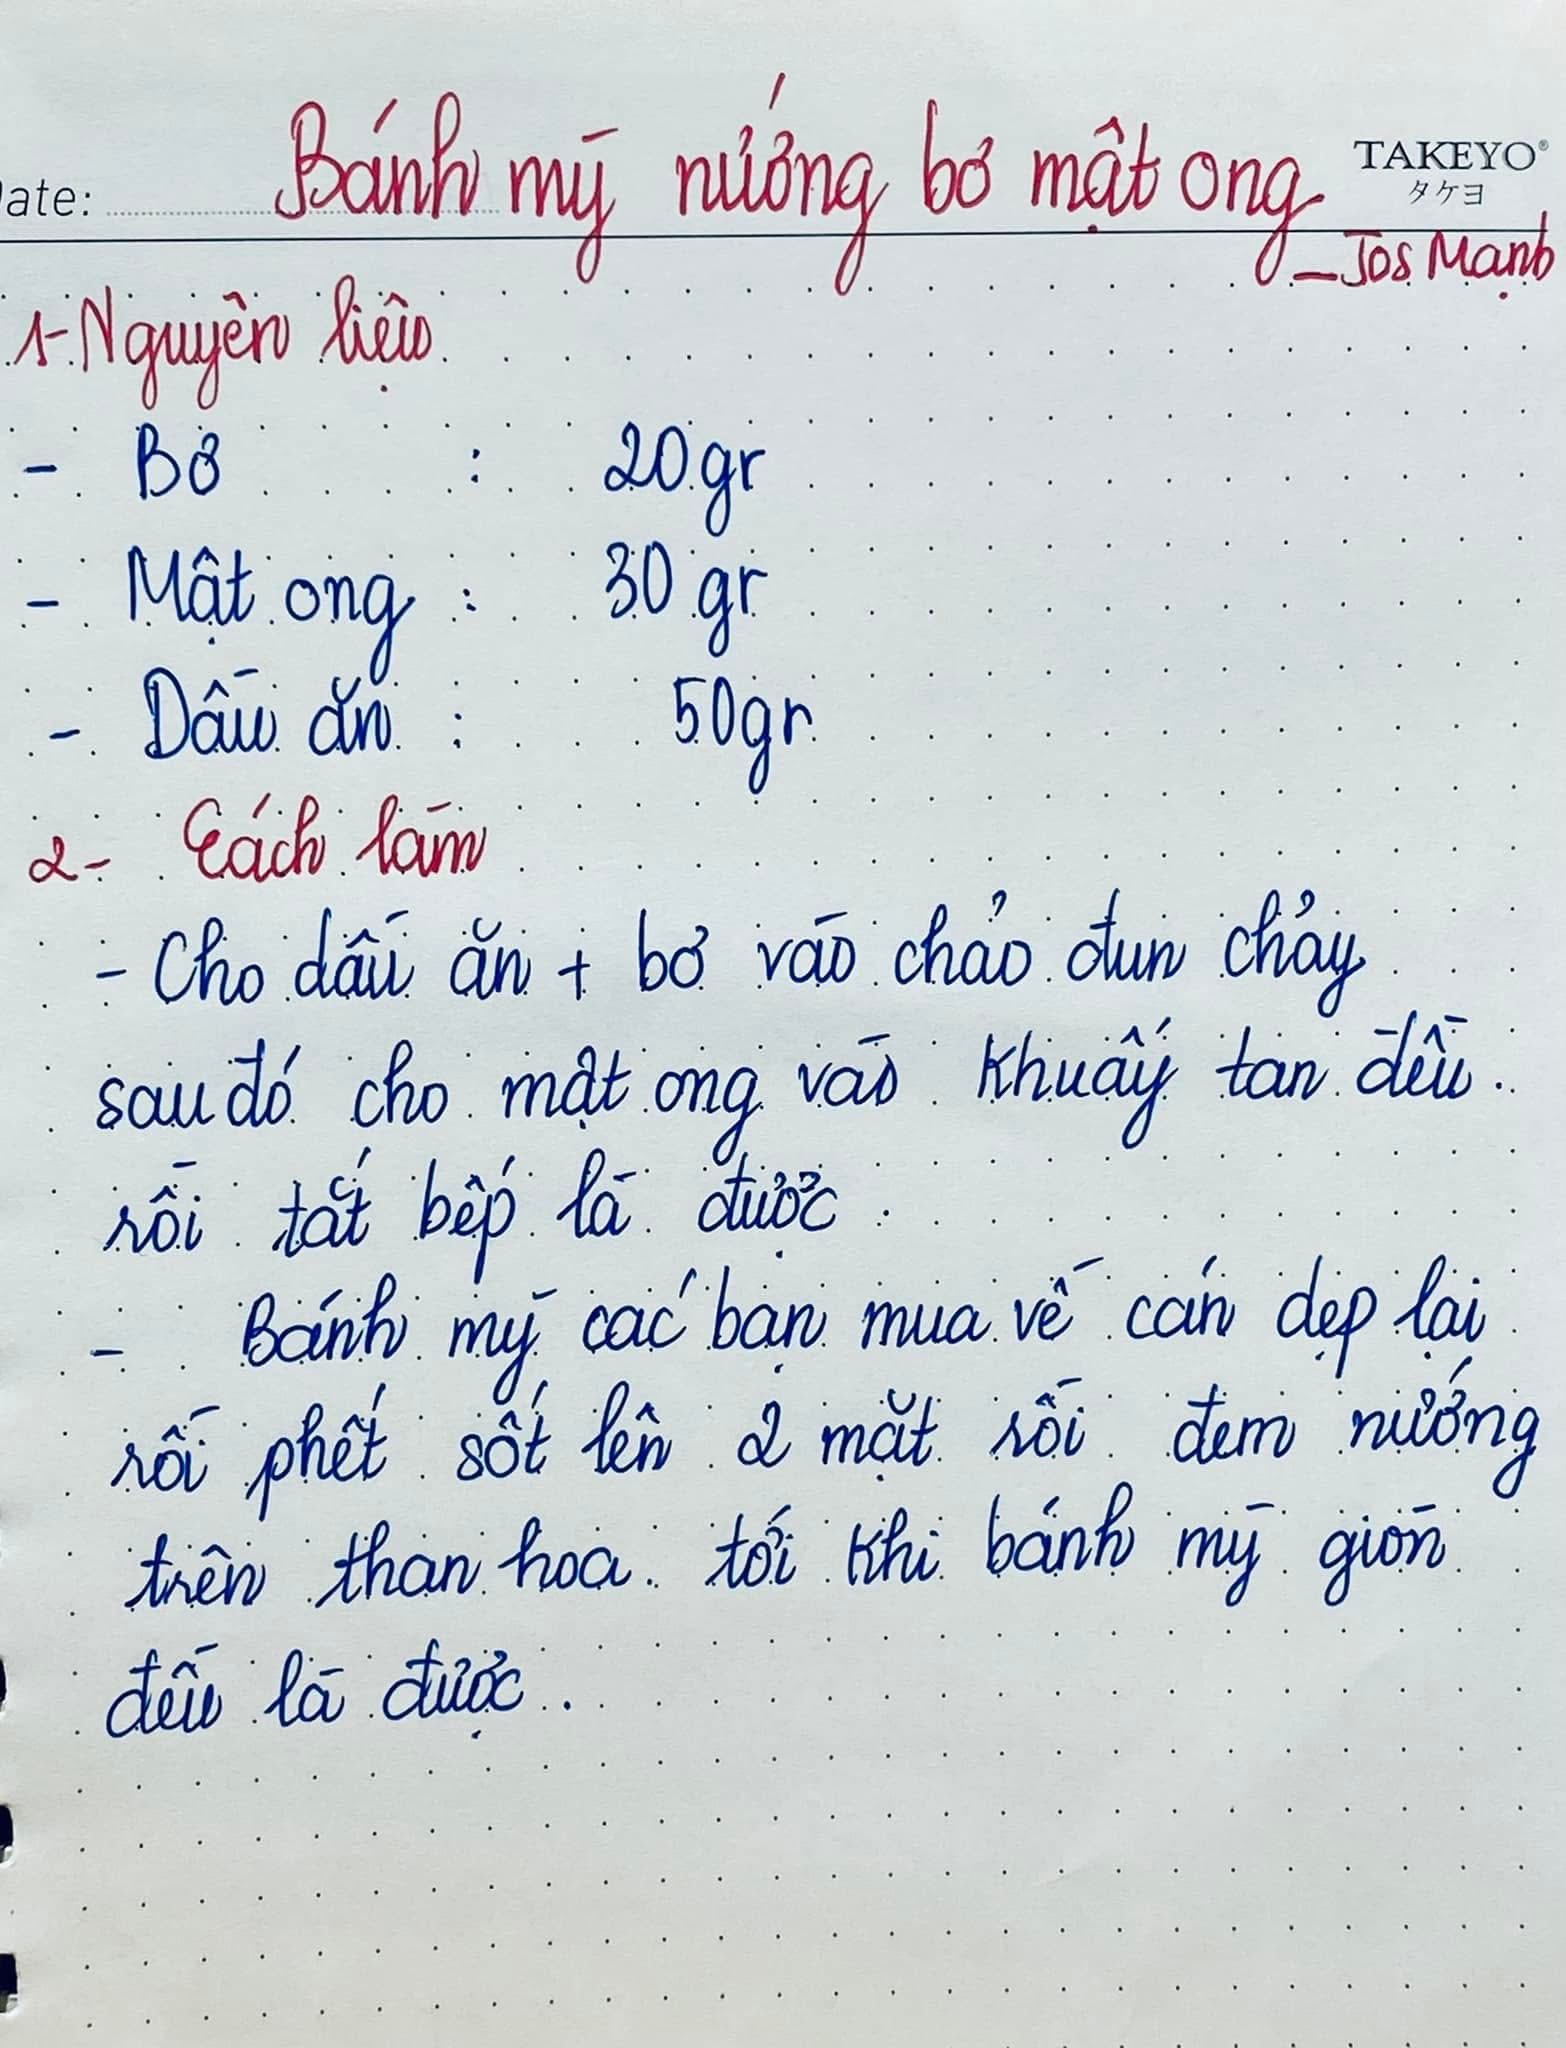 Bánh mỳ nướng bơ mật ong
TAKEYO®
タケヨ
ate:
_Jos Mạnh
1- Nguyên liệu
- Bơ : 20gr
- Mật ong : 30 gr
- Dầu ăn : 50gr
2- Cách làm
- Cho dầu ăn + bơ vào chảo đun chảy
sau đó cho mật ong vào khuấy tan đều.
rồi tắt bếp là được.
- Bánh mỳ các bạn mua về cán dẹp lại
rồi phết sốt lên 2 mặt rồi đem nướng
trên than hoa. tới khi bánh mỳ giòn
đều là được.